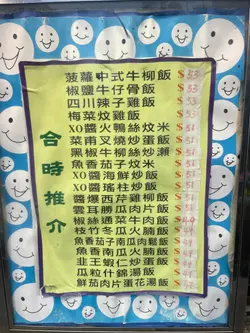 合時推介
菠蘿中式牛柳飯 $53
椒鹽牛仔骨飯 $53
四川辣子雞飯 $53
梅菜炆雞飯 $53
XO醬火鴨絲炆米 $51
菜甫叉燒炒蛋飯 $51
黑椒牛柳絲炒瀨 $51
魚香茄子炆米 $51
XO醬海鮮炒飯 $51
XO醬瑤柱炒飯 $51
醬爆西芹雞柳飯
雲耳勝瓜肉片飯
椒絲通菜牛肉飯
枝竹冬瓜火腩飯
魚香茄子南瓜肉鬆飯
魚香南瓜火腩飯
韭王蝦仁炒蛋飯
瓜粒什錦湯飯
鮮茄肉片蛋花湯飯